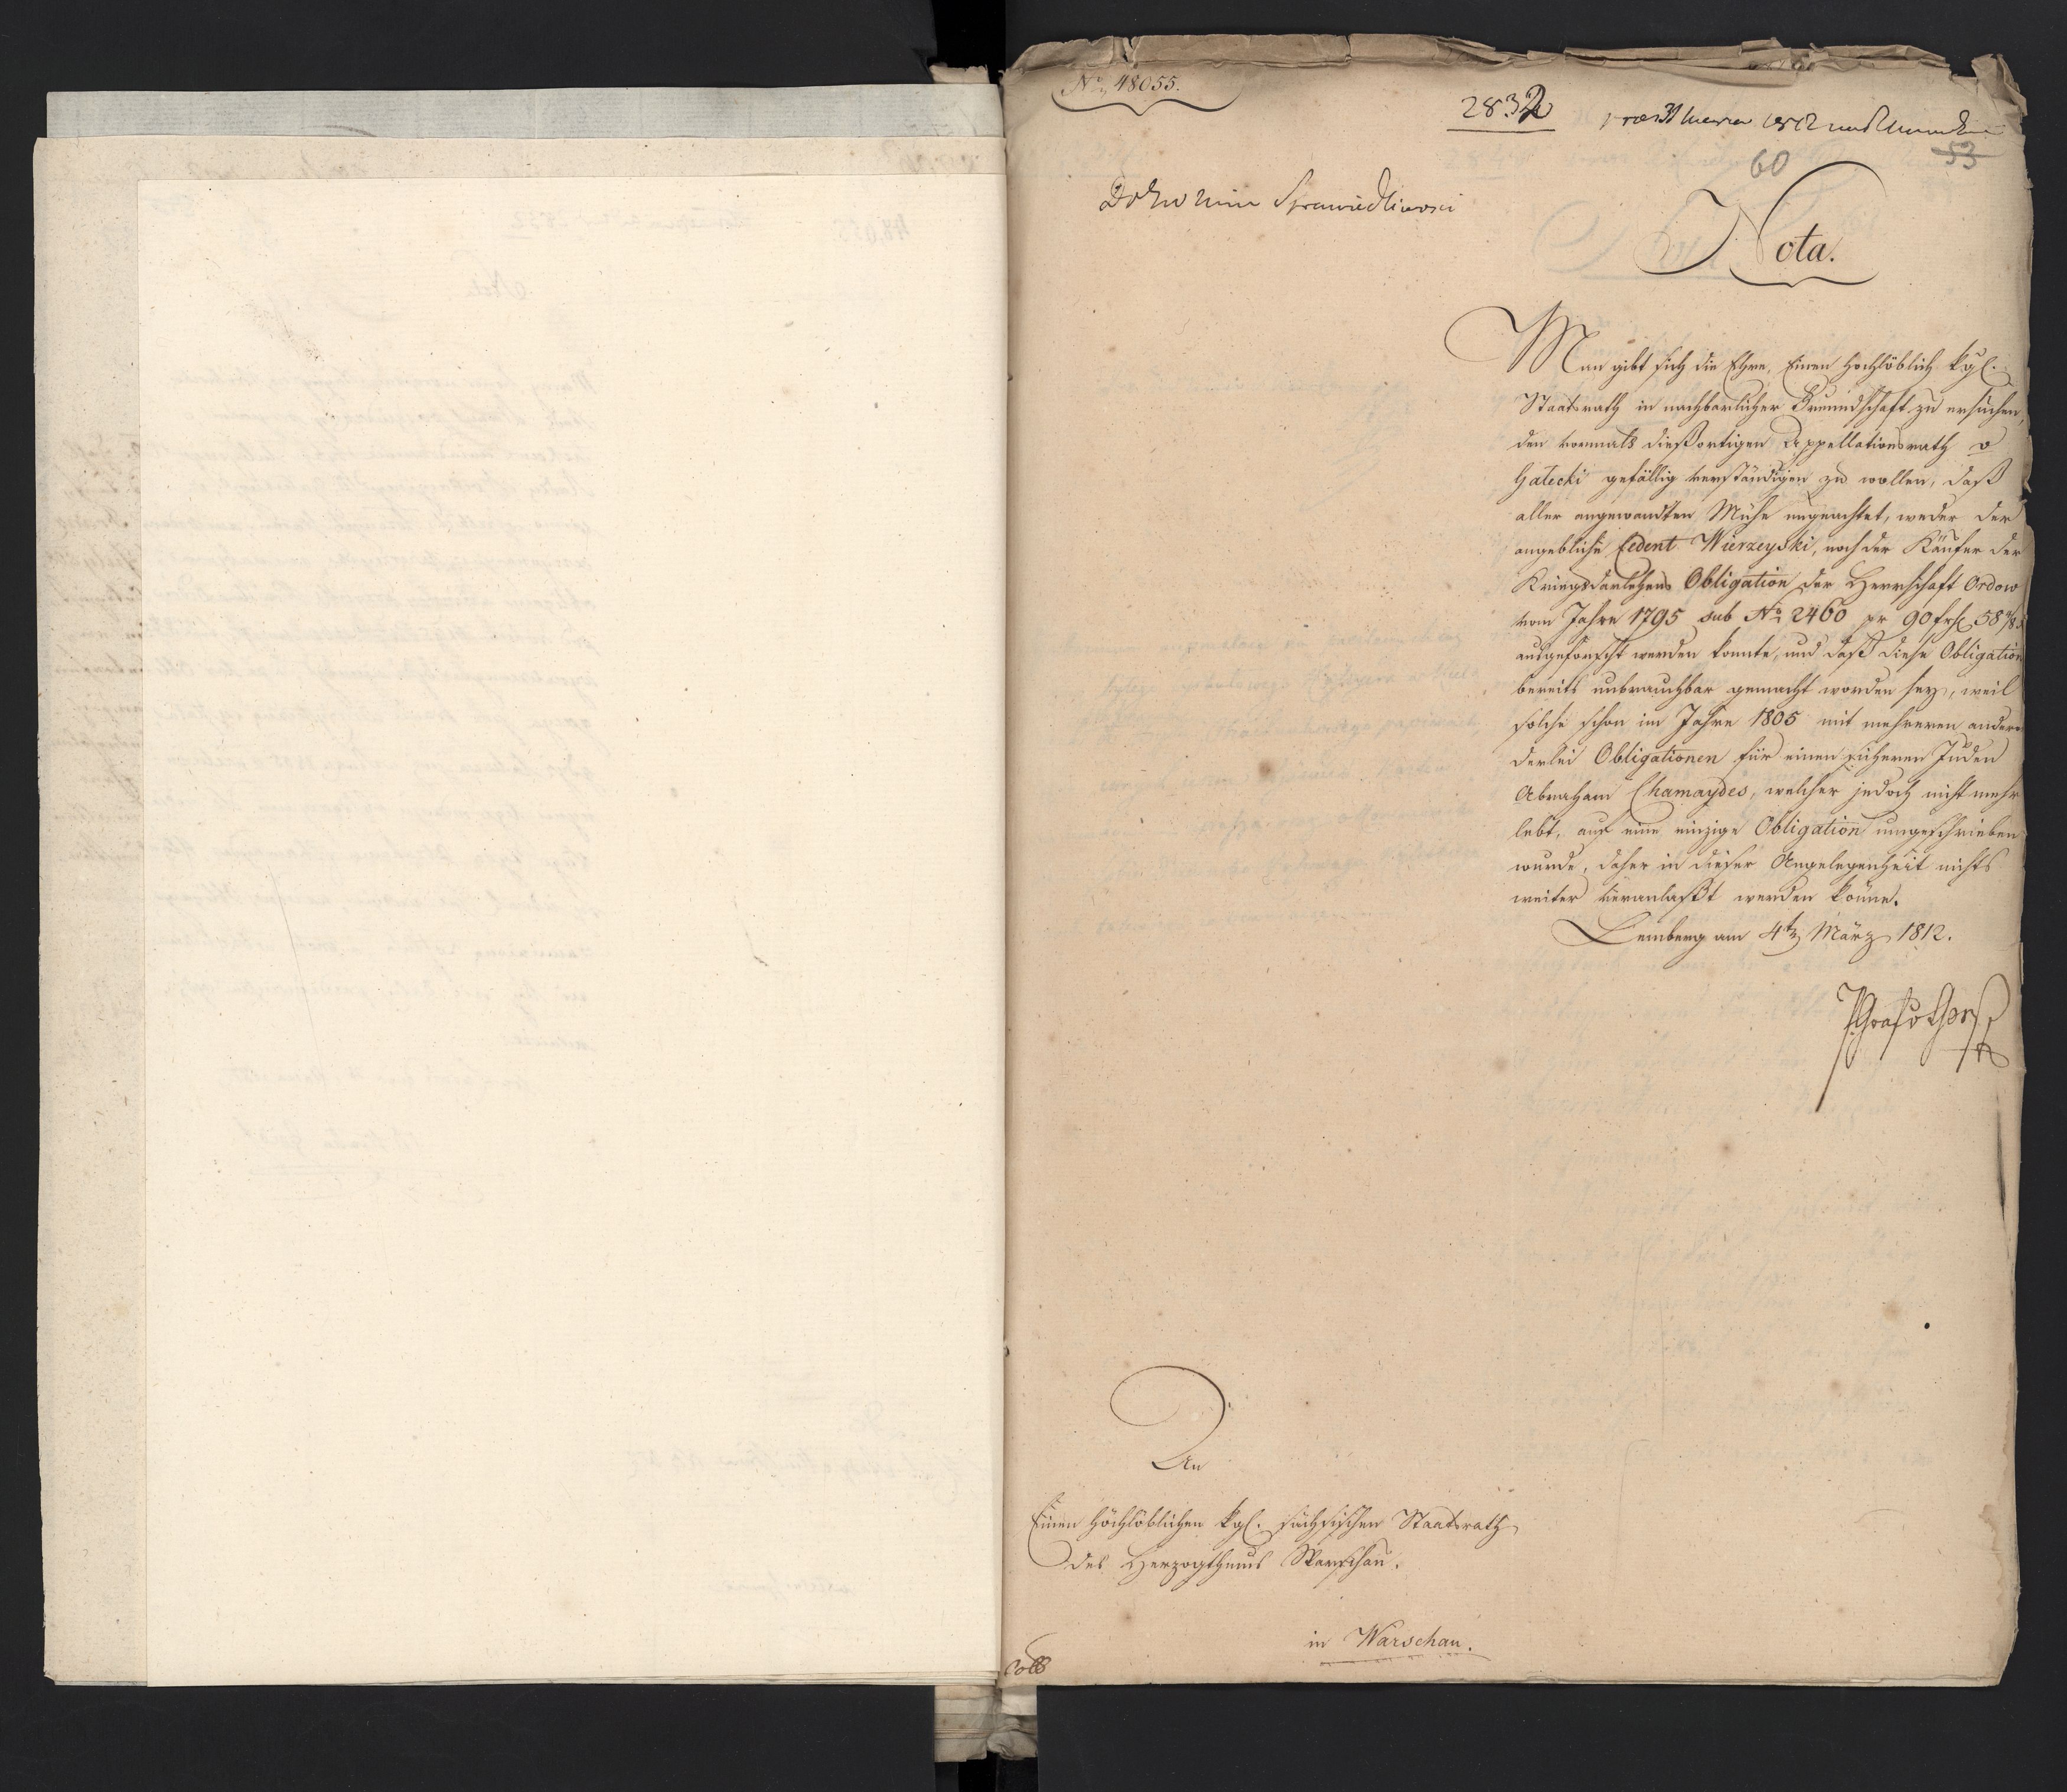 No 48055.
2832
60
53
Do Kro Min Sprawiedliwosci
Nota.
Man gibt sich die Ehre, Einen Hochlöblich kgl.
Staatsrath in nachbarlicher Freundschaft zu ersuchen,
den vormals dießortigen Appellationsrath v
Gatecki gefällig verständigen zu wollen, daß
aller angewandten Mühe ungeachtet, weder der
angebliche Cedent Wierzeyski, noch der Käufer der
Kriegsdarlehens Obligation der Herrschaft Ordow
vom Jahre 1795 sub No 2460 pr 90 fr 58
ausgeforscht werden konnte, und daß diese Obligation
bereits unbrauchbar gemacht worden sey, weil
solche schon im Jahre 1805 mit mehreren andern
derlei Obligationen für einen sicheren Juden
Abraham Chamaydes, welcher jedoch nicht mehr
lebt, auf eine einzige Obligation umgeschrieben
wurde, daher in dieser Angelegenheit nichts
weiter veranlaßt werden könne.
Lemberg am 4tn März 1812.
An
Einen Hochlöblichen kgl. sächsischen Staatsrath
des Herzogthums Warschau.
in Warschau.